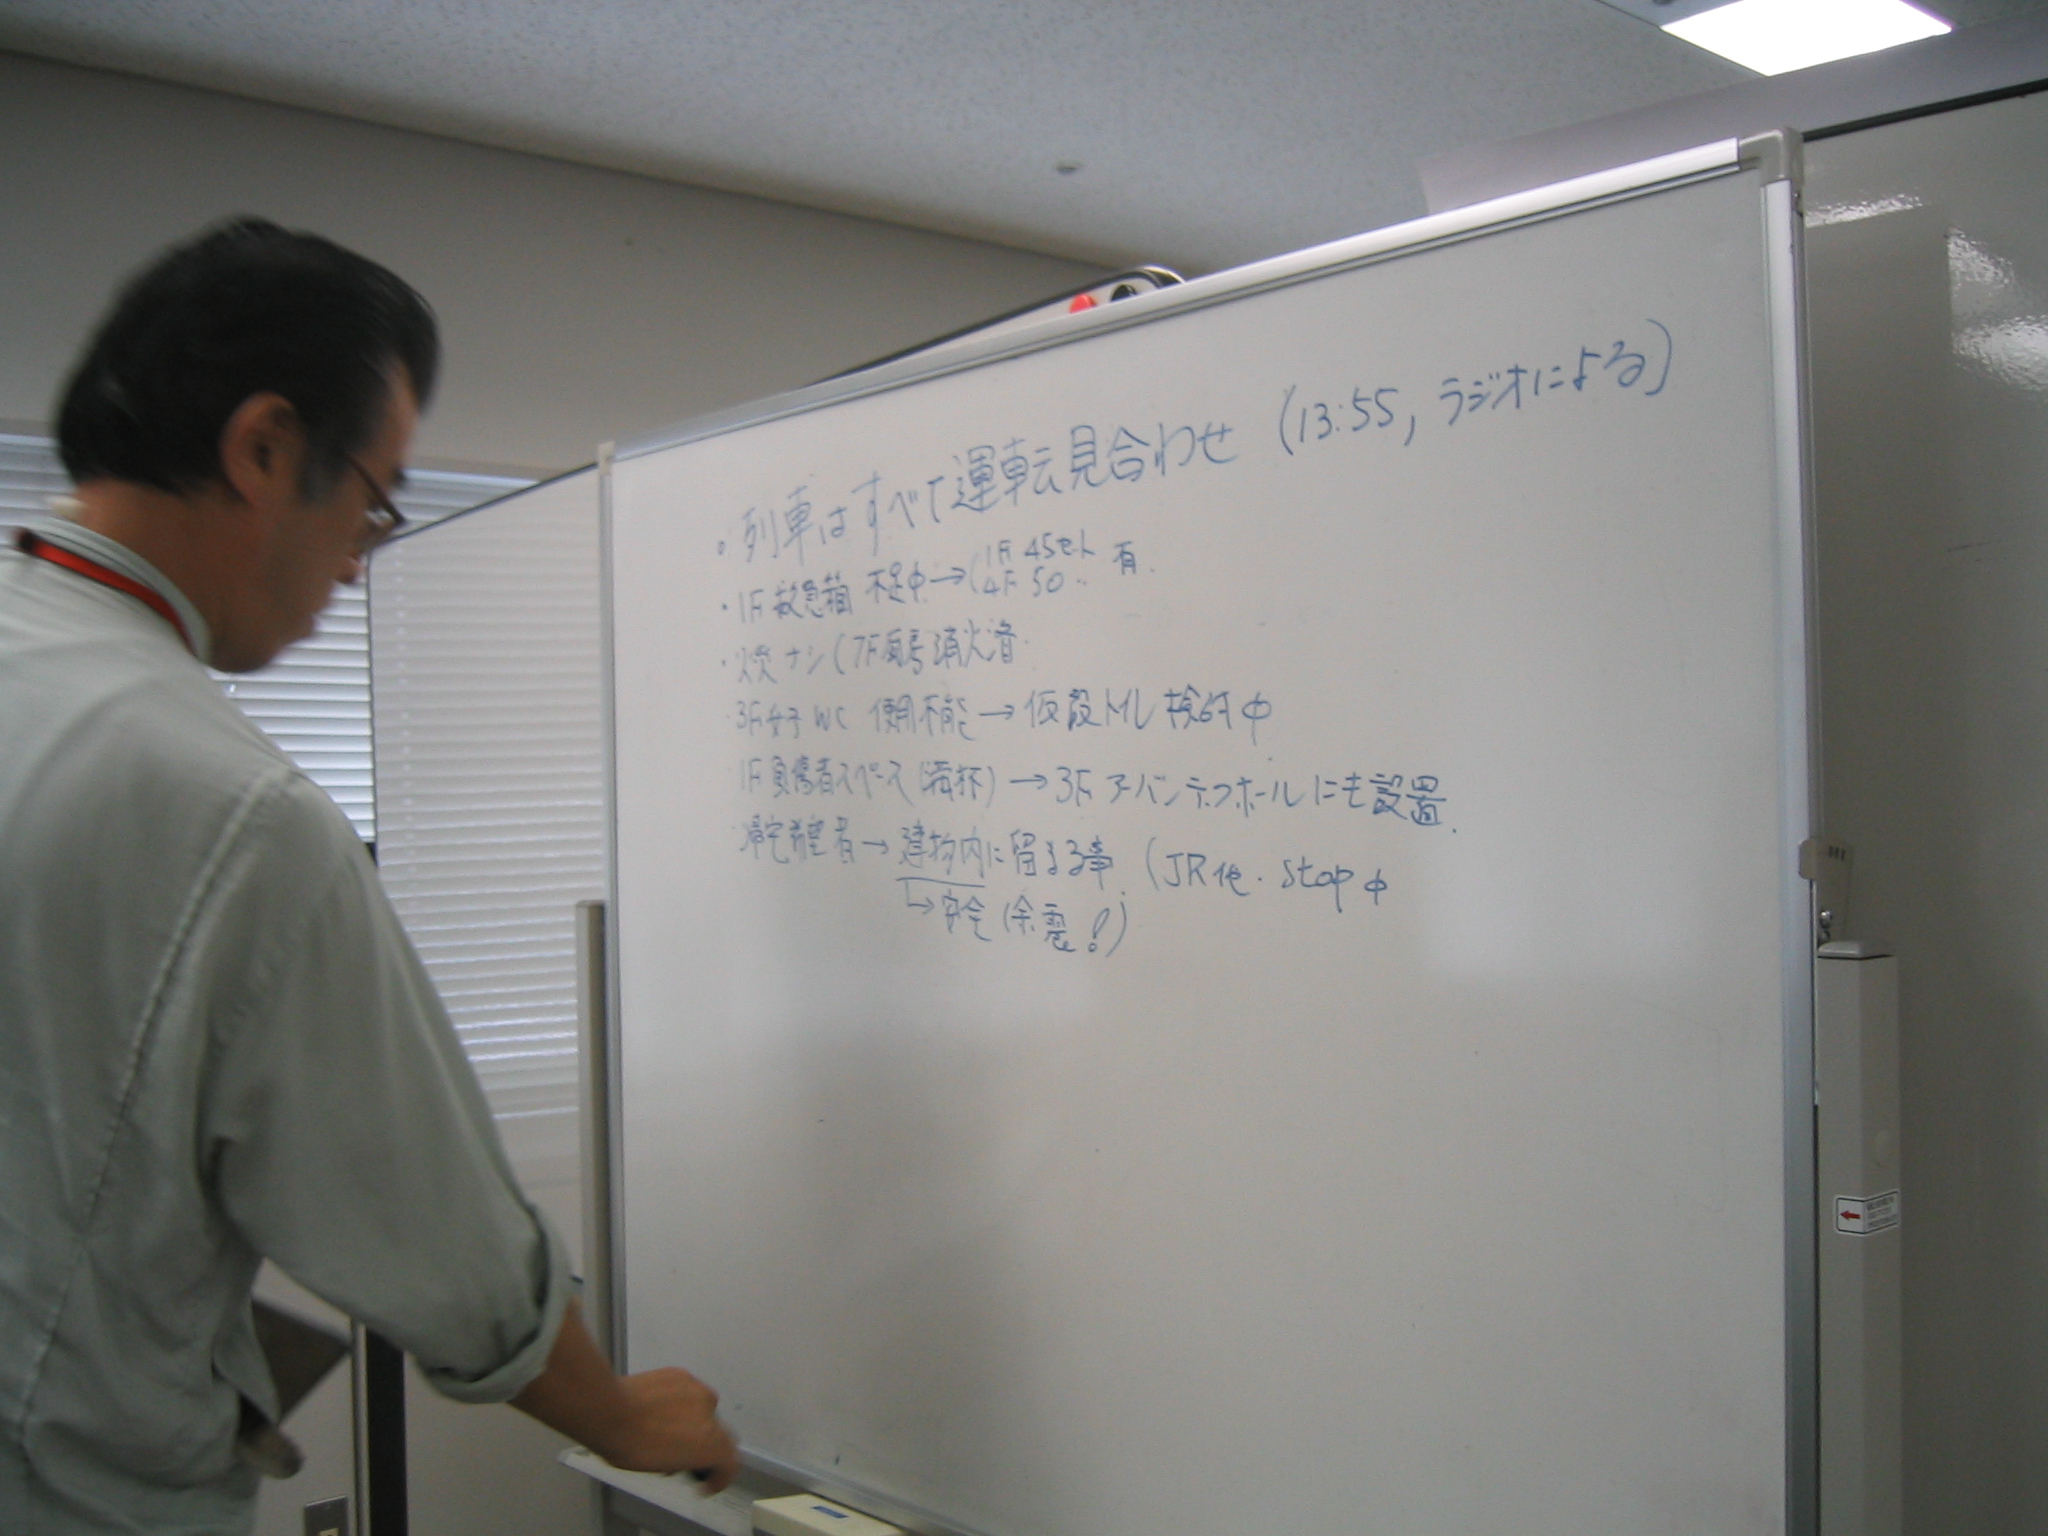 ・列車はすべて運転見合わせ (13:55, ラジオによる)
・1F 救急箱 不足中→(1F 45セット 有.
4F 50 〃
・火災ナシ(7F 消火済.
・3F女子WC 使用不能→仮設トイレ検討中
1F負傷者スペース(満杯)→3Fアーバンテラスホールにも設置.
帰宅希望者→建物内に留まる事. (JR他. stop中
↳安全(余震!)